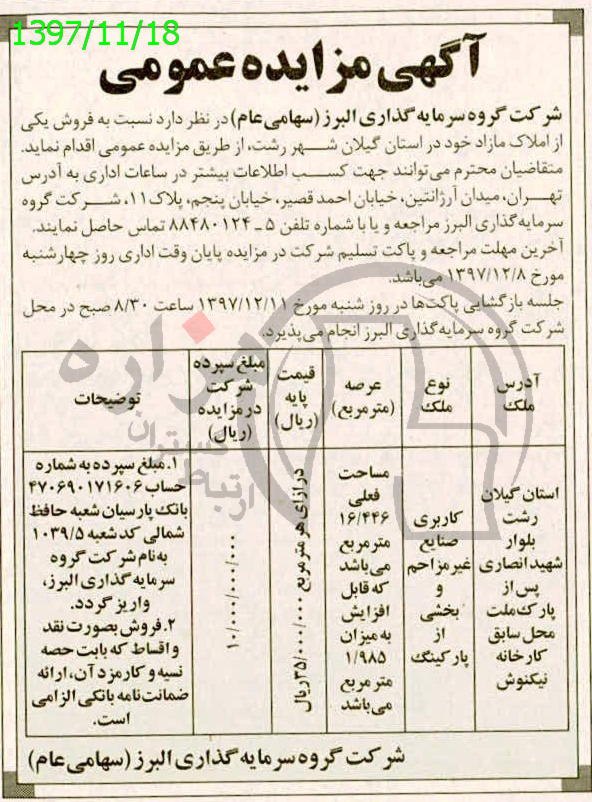 1397/11/18
آگهی مزایده عمومی
شرکت گروه سرمایه گذاری البرز (سهامی عام) در نظر دارد نسبت به فروش یکی
از املاک مازاد خود در استان گیلان شهر رشت، از طریق مزایده عمومی اقدام نماید.
متقاضیان محترم می‌توانند جهت کسب اطلاعات بیشتر در ساعات اداری به آدرس
تهران، میدان آرژانتین، خیابان احمد قصیر، خیابان پنجم، پلاک ۱۱، شرکت گروه
سرمایه گذاری البرز مراجعه و یا با شماره تلفن ۵ ـ ۸۸۴۸۰۱۲۴ تماس حاصل نمایند.
آخرین مهلت مراجعه و پاکت تسلیم شرکت در مزایده پایان وقت اداری روز چهارشنبه
مورخ ۱۳۹۷/۱۲/۸ می‌باشد.
جلسه بازگشایی پاکت‌ها در روز شنبه مورخ ۱۳۹۷/۱۲/۱۱ ساعت ۸/۳۰ صبح در محل
شرکت گروه سرمایه گذاری البرز انجام می‌پذیرد.
آدرس
ملک
نوع
ملک
عرصه
(مترمربع)
قیمت
پایه
(ریال)
مبلغ سپرده
شرکت
در مزایده
(ریال)
توضیحات
استان گیلان
رشت
بلوار
شهید انصاری
پس از
پارک ملت
محل سابق
کارخانه
نیکنوش
کاربری
صنایع
غیرمزاحم
و
بخشی
از
پارکینگ
مساحت
فعلی
۱۶/۴۴۶
مترمربع
می‌باشد
که قابل
افزایش
به میزان
۱/۹۸۵
مترمربع
می‌باشد
در ازای هر مترمربع ۳۵/۰۰۰/۰۰۰ ریال
۱۰/۰۰۰/۰۰۰/۰۰۰
۱. مبلغ سپرده به شماره
حساب ۴۷۰۶۹۰۱۷۱۶۰۶
بانک پارسیان شعبه حافظ
شمالی کد شعبه ۱۰۳۹/۵
به نام شرکت گروه
سرمایه گذاری البرز،
واریز گردد.
۲. فروش بصورت نقد
و اقساط که بابت حصه
نسیه و کارمزد آن، ارائه
ضمانت نامه بانکی الزامی
است.
شرکت گروه سرمایه گذاری البرز (سهامی عام)
هزاره
گستران
ارتباط